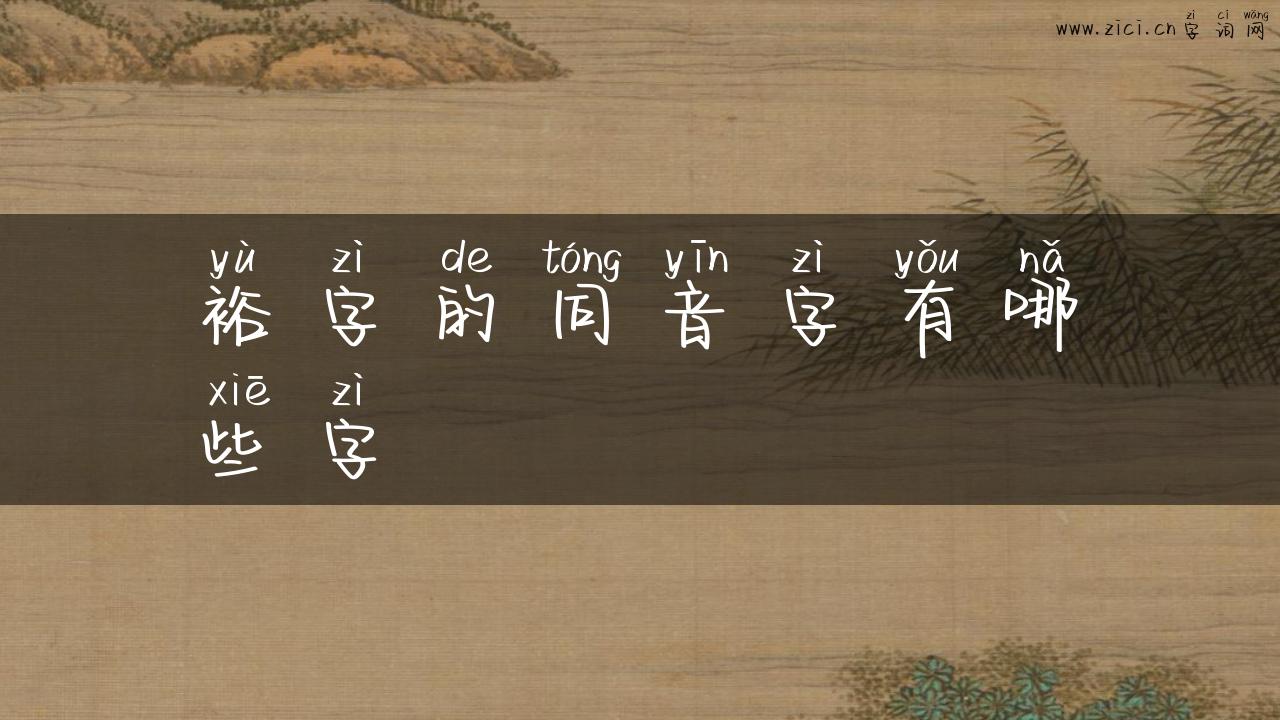 zì cí wǎng
www.zici.cn 字 词 网
yù zì de tóng yīn zì yǒu nǎ
裕 字 的 同 音 字 有 哪
xiē zì
些 字